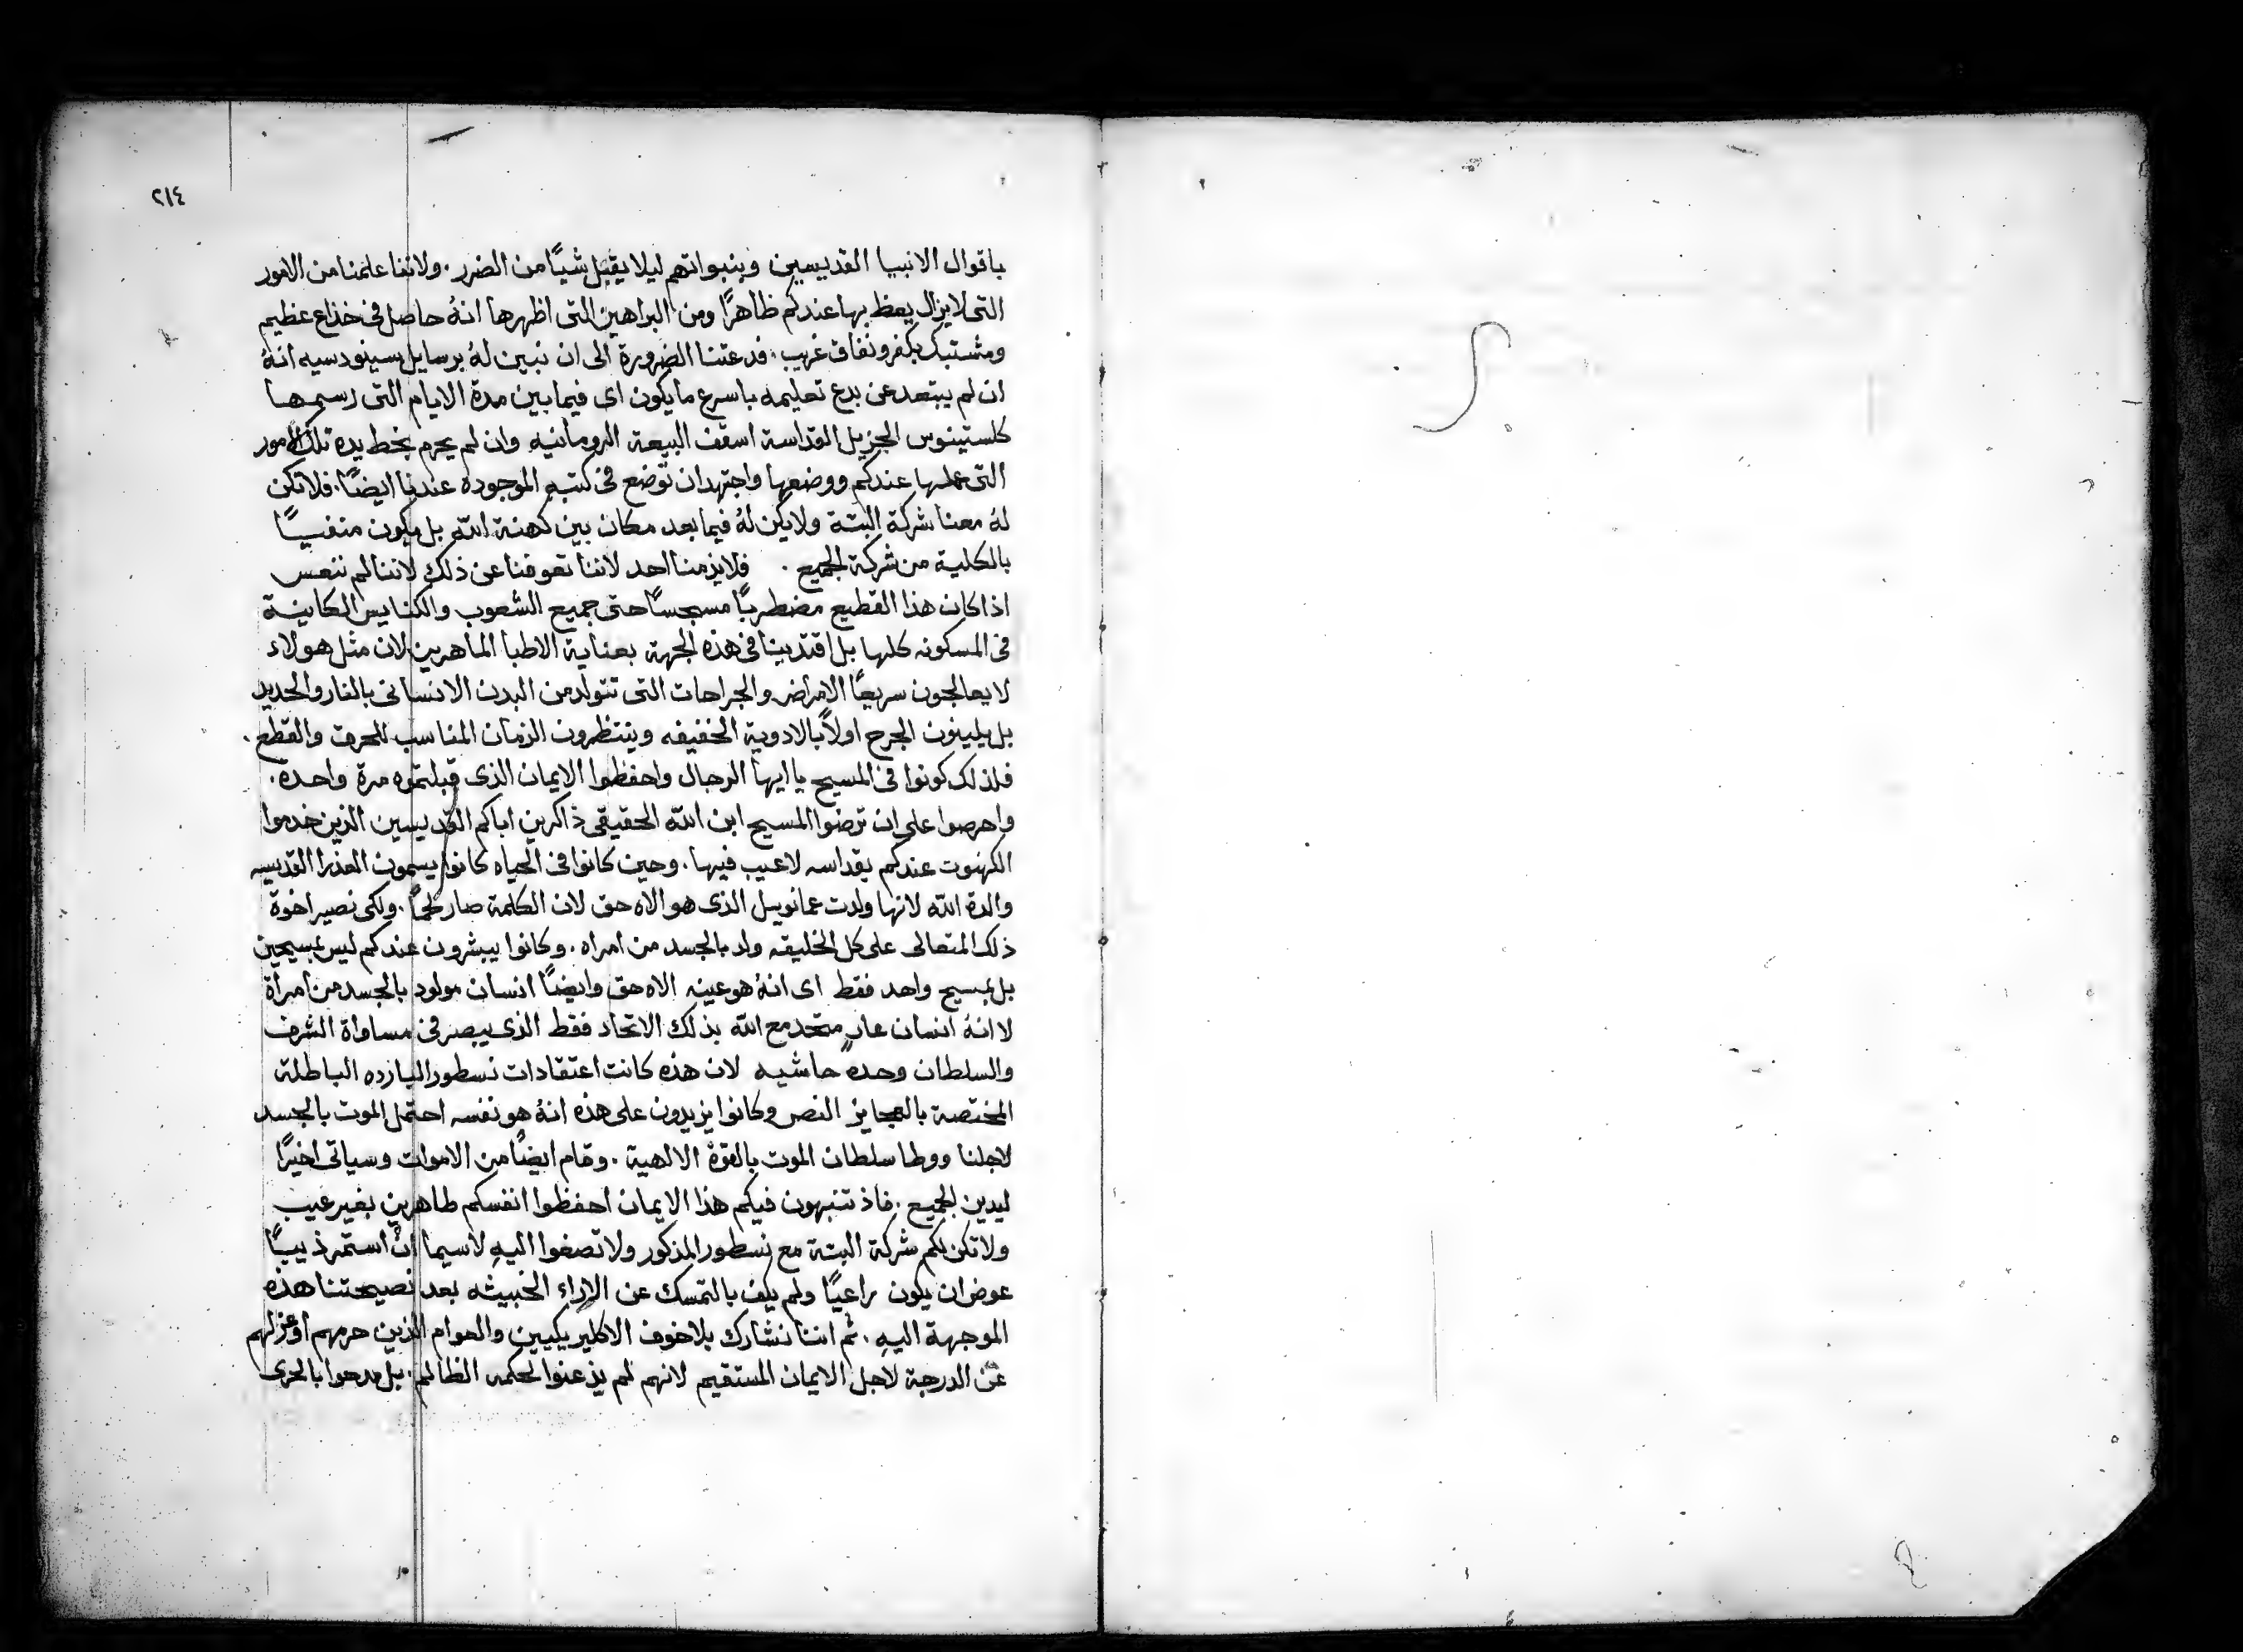 ٢١٤
باقوال الانبيا القديسين وبنبواتهم ليلا يقبل شيًا من الضرر . ولاننا علمنا من الامور
التى لا يزال يعظ بها عندكم ظاهرًا ومن البراهين التى اظهرها انهُ حاصل فى خداع عظيم
ومشتبك بكفر ونفاق غريب . فدعتنا الضرورة الى ان نبين لهُ برسايل سينودسيه انهُ
ان لم يبتعد عن بدع تعليمه باسرع ما يكون اى فيما بين مدة الايام التى رسمها
كلستينوس الجزيل القداسة اسقف البيعة الرومانيه وان لم يحرم بخط يده تلك الامور
التى علمها عندكم ووضعها واجتهد ان توضع فى كتبه الموجوده عندنا ايضًا . فلا تكن
لهُ معنا شركة البتة ولا يكن لهُ فيما بعد مكان بين كهنة الله بل يكون منفيًا
بالكلية من شركة الجميع . فلا يذمنا احد لاننا تعوقنا عن ذلك لاننا لم ننعس
اذا كان هذا القطيع مضطربًا مسبجسًا حتى جميع الشعوب والكنايس الكاينة
فى المسكونه كلها بل اقتدينا فى هذه الجهة بعناية الاطبا الماهرين لان مثل هولاء
لا يعالجون سريعًا الامراض والجراحات التى تتولد من البدن الانسانى بالنار والحديد
بل يلينون الجرح اولاً بالادوية الخفيفه وينتظرون الزمان المناسب للحرق والقطع .
فلذلك كونوا فى المسيح يا ايها الرجال واحفظوا الايمان الذى قبلتموه مرة واحده .
واحرصوا على ان ترضوا المسيح ابن الله الحقيقى ذاكرين اباكم القديسين الذين خدموا
الكهنوت عندكم بقداسه لا عيب فيها . وحين كانوا فى الحياه كانوا يسمون العذرا القديسه
والدة الله لانها ولدت عمانوييل الذى هو الاه حق لان الكلمة صار لحمًا . ولكى نصير اخوة
ذلك المتعالى على كل الخليقه ولد بالجسد من امراه . وكانوا يبشرون عندكم ليس بمسيحين
بل بمسيح واحد فقط اى انهُ هو عينه الاه حق وايضًا انسان مولود بالجسد من امراة
لا انهُ انسان عارٍ متحد مع الله بذلك الاتحاد فقط الذى يبصر فى مساواة الشرف
والسلطان وحده حاشيه لان هذه كانت اعتقادات نسطور البارده الباطلة
المختصة بالعجايز النص وكانوا يزيدون على هذه انهُ هو نفسه احتمل الموت بالجسد
لاجلنا ووطا سلطان الموت بالقوة الالهية . وقام ايضًا من الاموات وسياتى اخيرًا
ليدين الجميع . فاذ تنبهون فيكم هذا الايمان احفظوا انفسكم طاهرين بغير عيب
ولا تكن لكم شركة البتة مع نسطور المذكور ولا تصغوا اليهِ لا سيما ان استمر ذيبًا
عوض ان يكون راعيًا ولم يكف بالتمسك عن الاراء الخبيثه بعد نصيحتنا هذه
الموجهة اليهِ . ثم اننا نشارك بلا خوف الاكليريكيين والعوام الذين حرمهم او عزلهم
عن الدرجة لاجل الايمان المستقيم لانهم لم يذعنوا لحكمه الظالم . بل مدحوا بالحرى